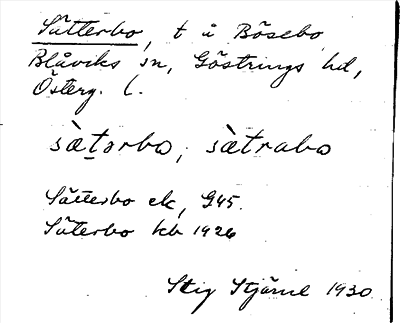 Sätterbo, t å Bösebo
Blåviks sn, Göstrings hd,
Österg. l.
sàt̠ərbo, sàtrabo
Sätterbo ek, G45.
Säterbo kb 1926
Stig Stjärne 1930